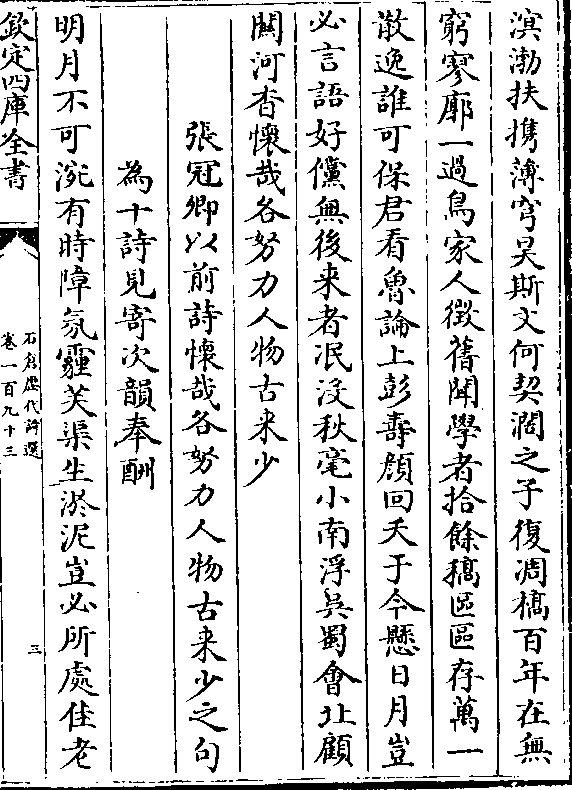 溟渤扶携薄穹昊斯文何契濶之子復凋槁百年在無
窮寥廓一過鳥家人徴舊聞學者拾餘稿區區存萬一
散逸誰可保君看魯論上彭壽顔回夭于今懸日月豈
必言語好儻無後来者泯没秋毫小南浮吳蜀會北顧
關河杳懷哉各努力人物古来少
張冠卿以前詩懷哉各努力人物古来少之句
為十詩見寄次韻奉酬
明月不可涴有時障氛霾芙渠生淤泥豈必所處佳老
欽定四庫全書
石倉歷代詩選
卷一百九十三
三